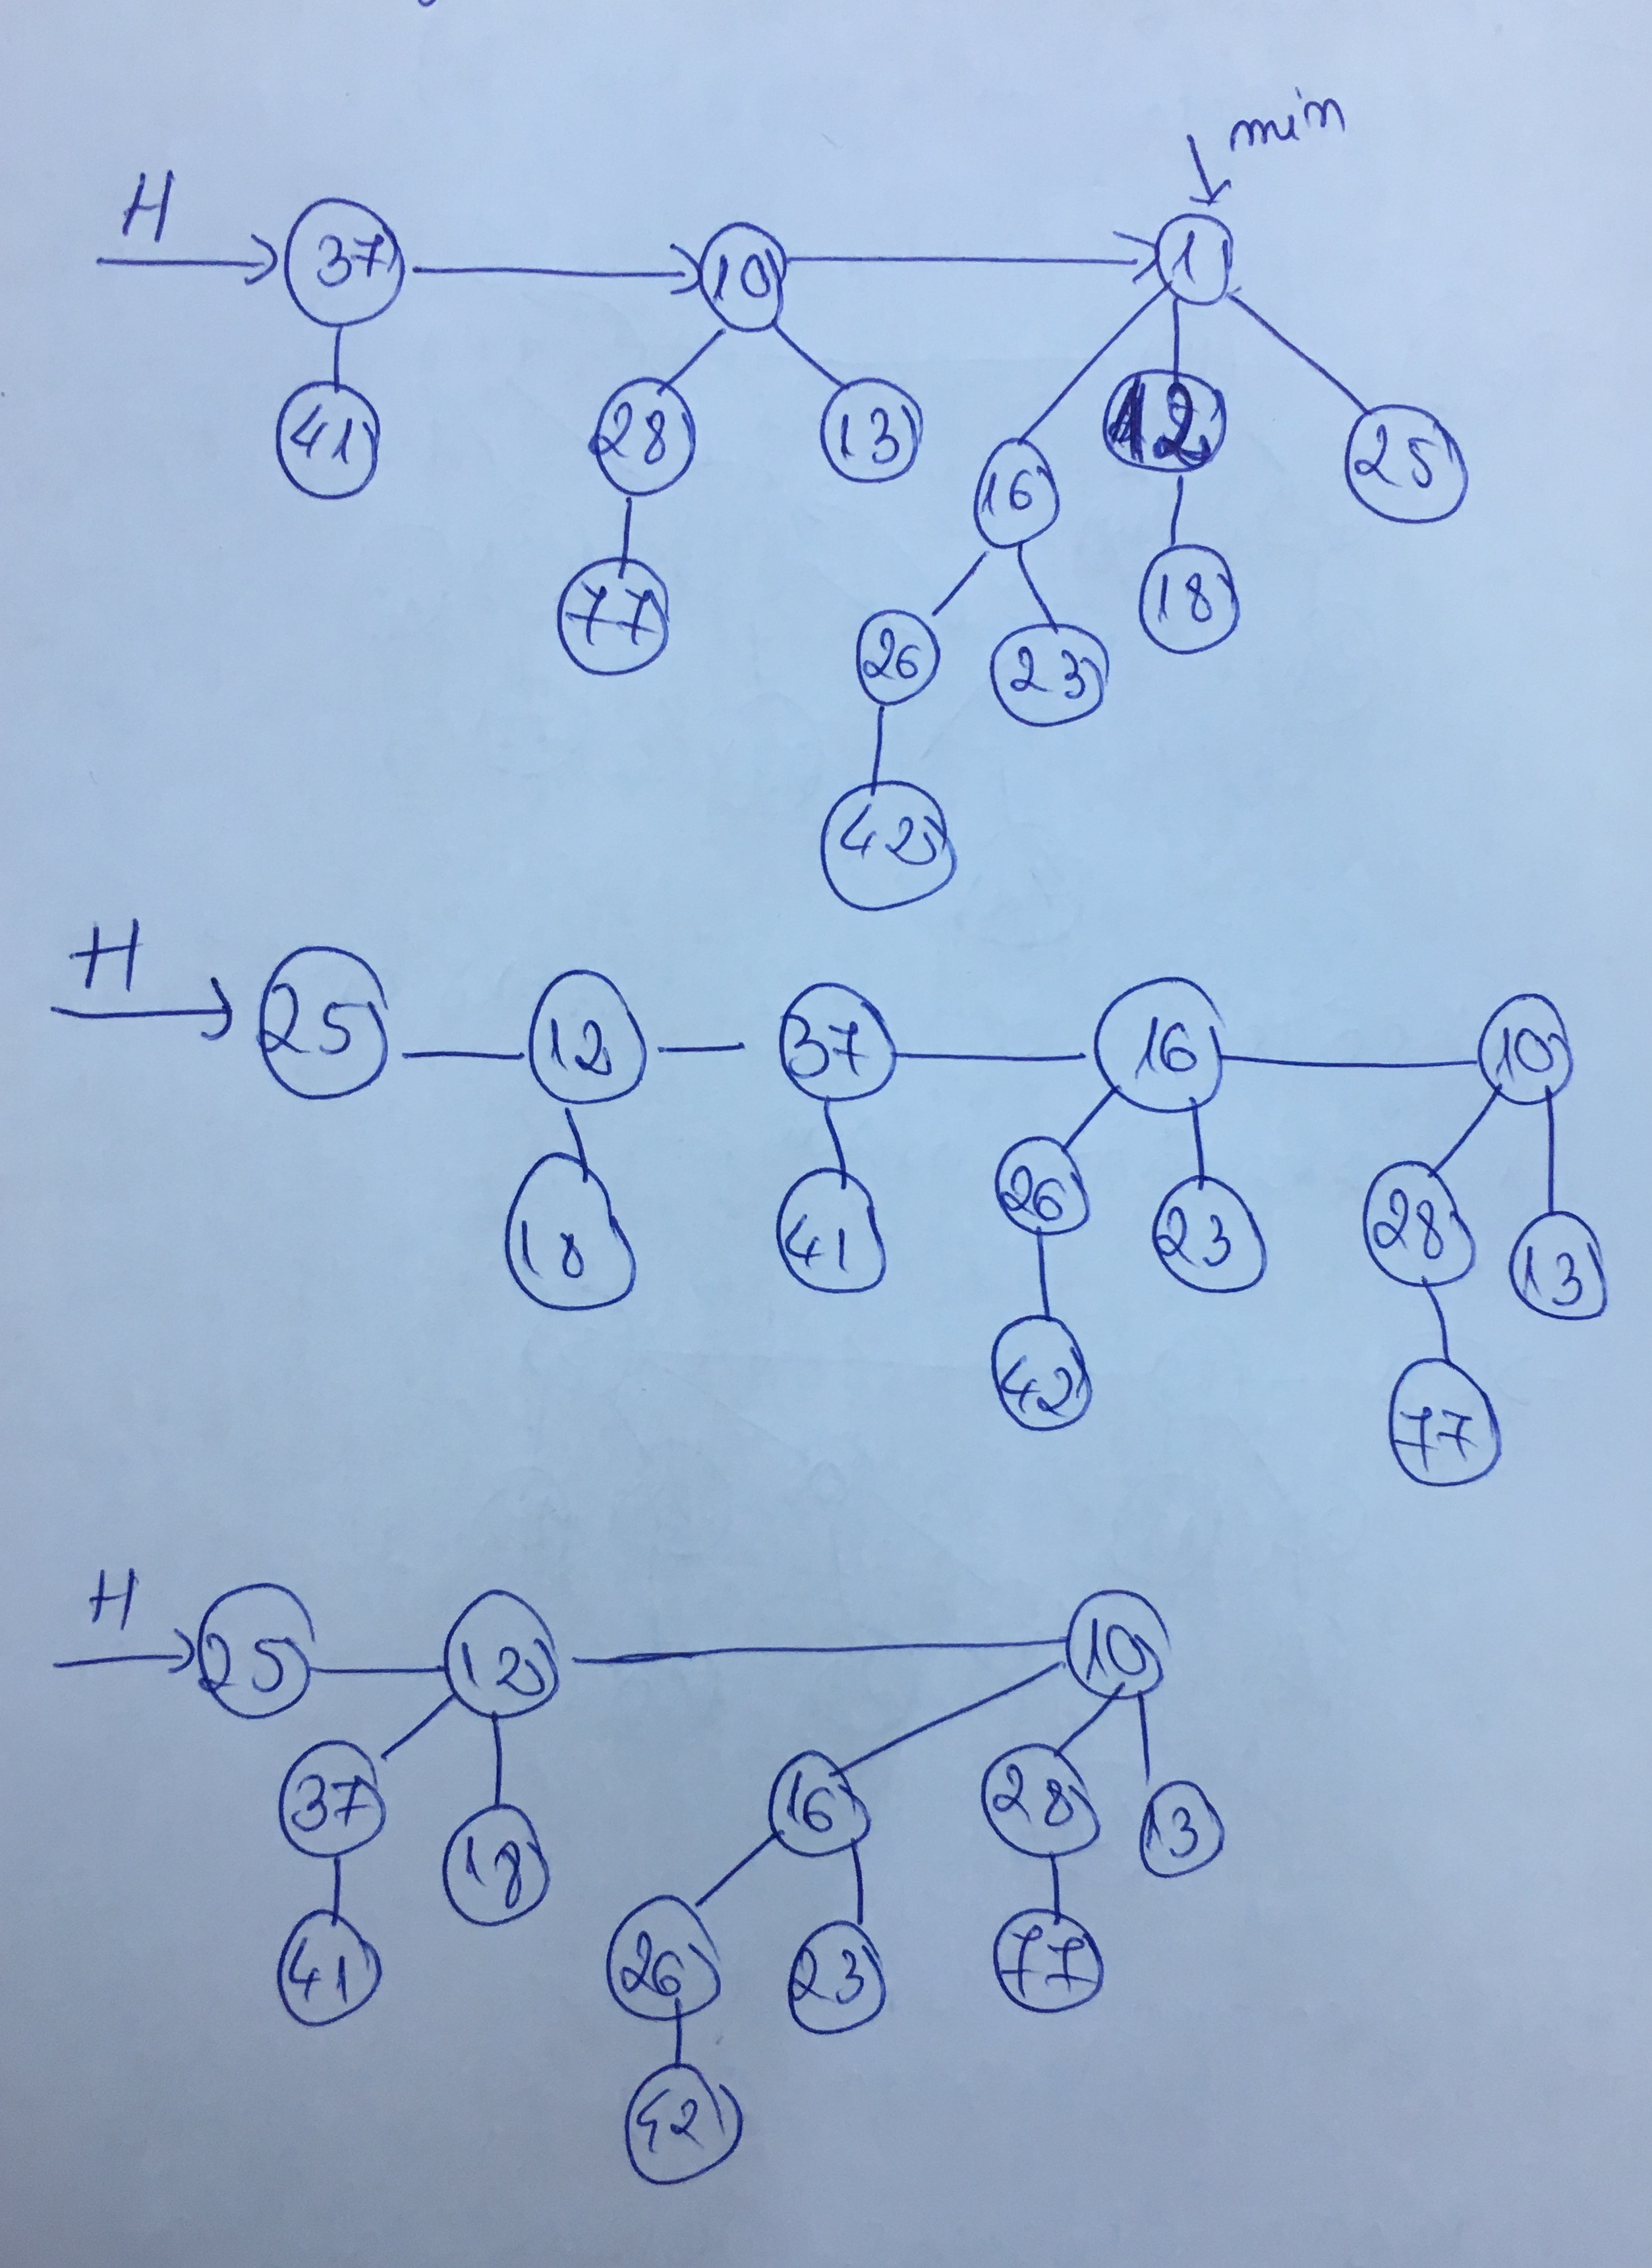 min
H 37 10 1
41 28 13 16 12 25
77 26 23 18
42
H 25 12 37 16 10
18 41 26 23 28 13
42 77
H 25 12 10
37 18 16 28 13
41 26 23 77
42